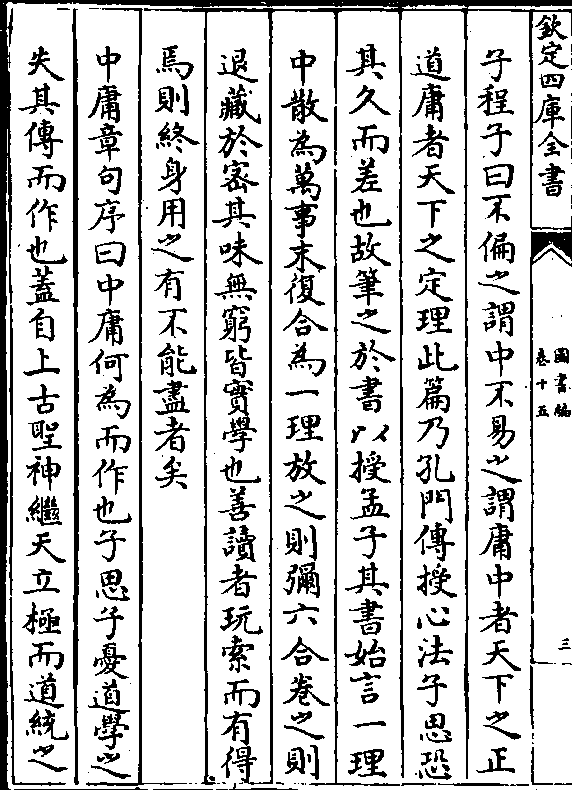 欽定四庫全書
圖書編
卷十五
三
子程子曰不偏之謂中不易之謂庸中者天下之正
道庸者天下之定理此篇乃孔門傳授心法子思恐
其久而差也故筆之於書以授孟子其書始言一理
中散為萬事末復合為一理放之則彌六合卷之則
退藏於密其味無窮皆實學也善讀者玩索而有得
焉則終身用之有不能盡者矣
中庸章句序曰中庸何為而作也子思子憂道學之
失其傳而作也蓋自上古聖神繼天立極而道統之